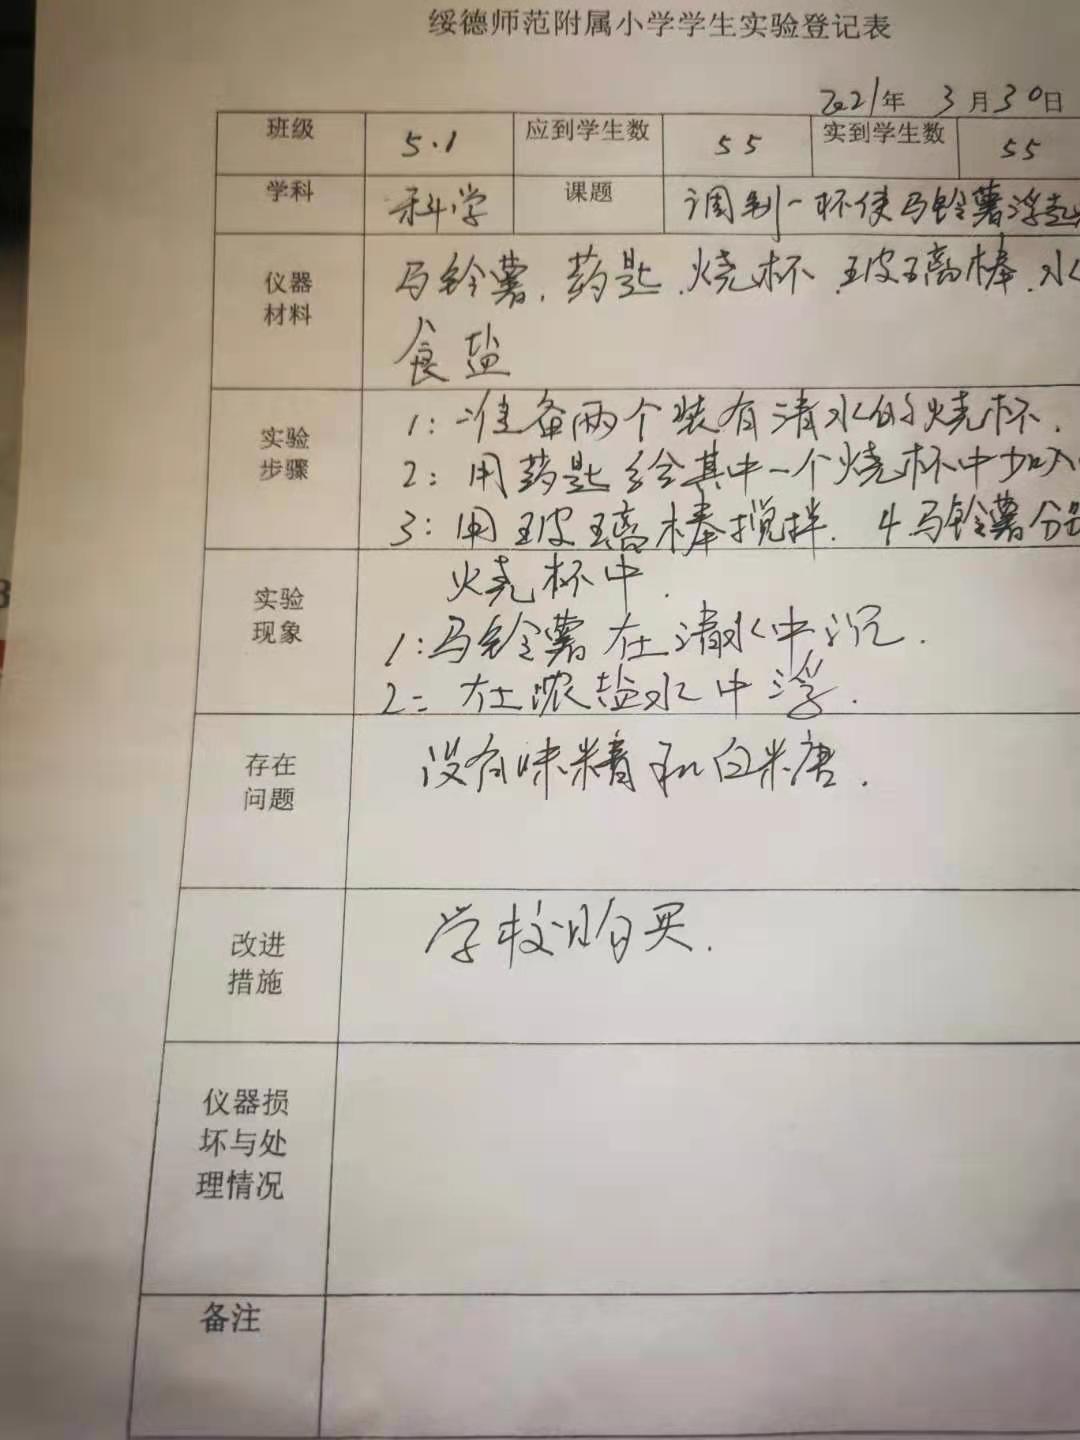 绥德师范附属小学学生实验登记表
2021年 3月30日
班级 5.1 应到学生数 55 实到学生数 55
学科 科学 课题 调制一杯使马铃薯浮起
仪器材料 马铃薯、药匙、烧杯、玻璃棒、水
食盐
实验步骤 1:准备两个装有清水的烧杯.
2:用药匙给其中一个烧杯中加入
3:用玻璃棒搅拌. 4马铃薯分
烧杯中.
实验现象 1:马铃薯在清水中沉.
2:在浓盐水中浮.
存在问题 没有味精和白糖.
改进措施 学校购买.
仪器损坏与处理情况
备注